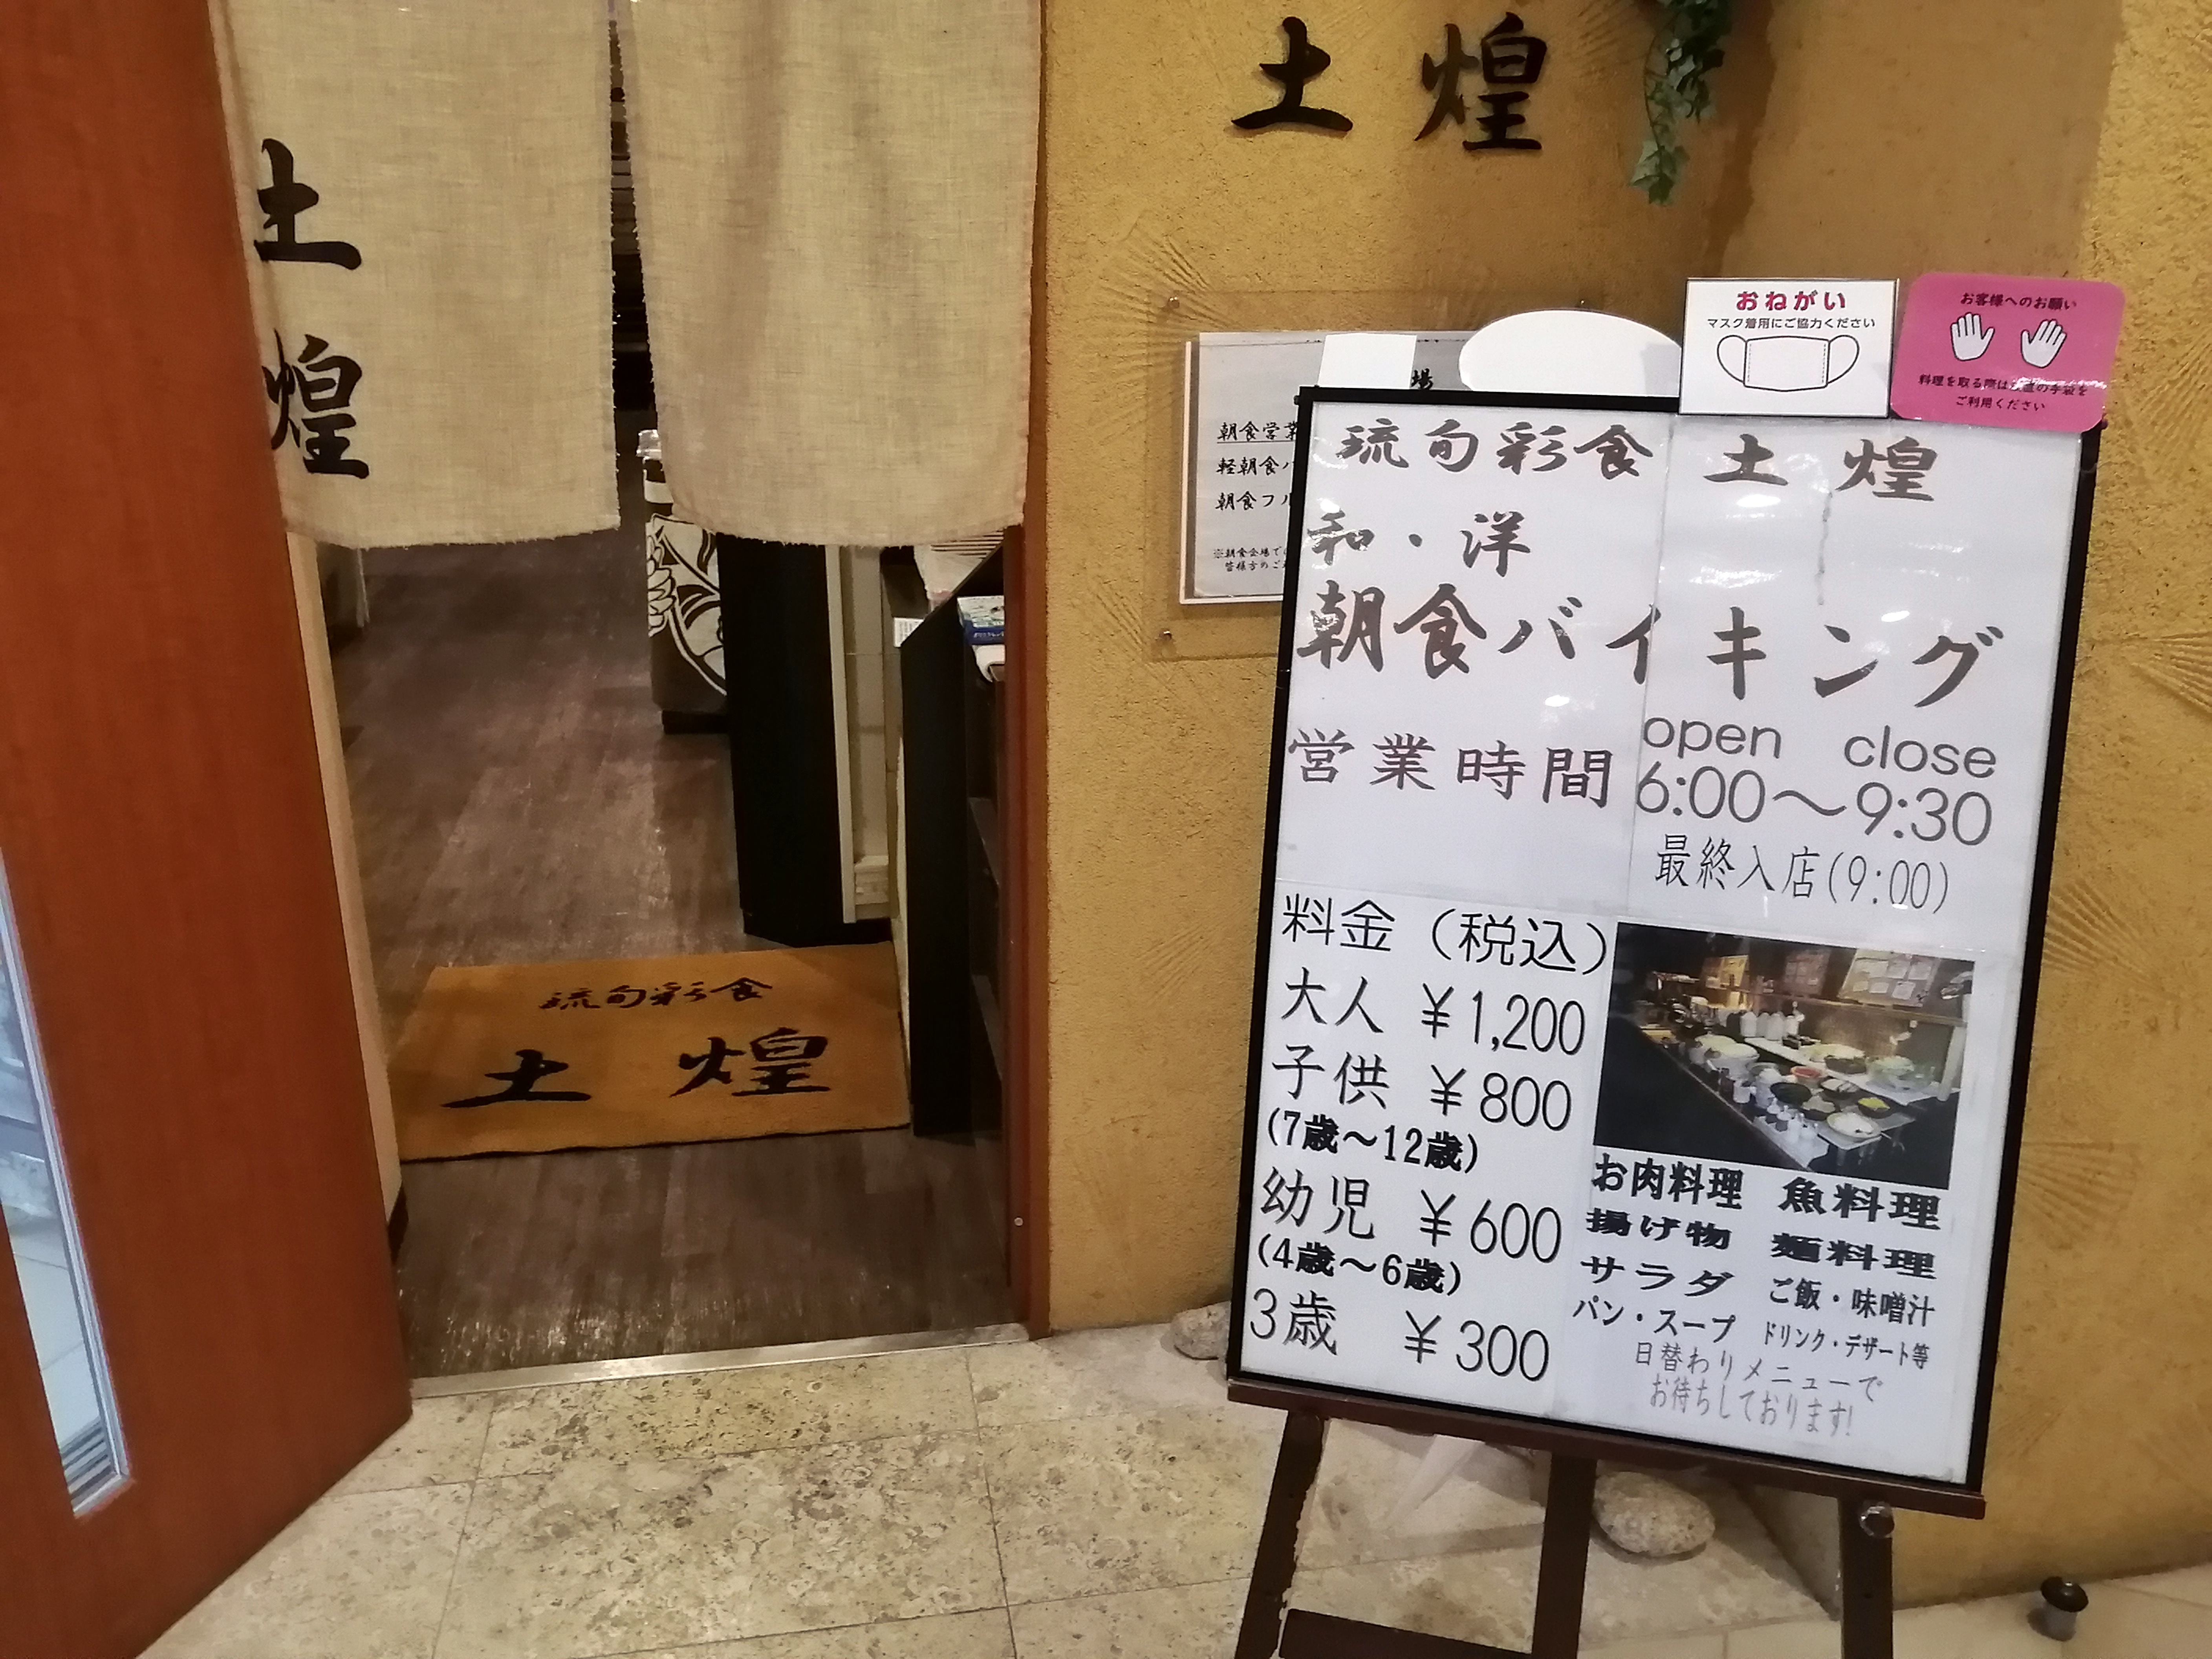 土煌
土
煌
場
朝食営業
軽朝食バ
朝食フル
※朝食会場で
皆様方のご
おねがい
マスク着用にご協力ください
お客様へのお願い
料理を取る際は
の手袋を
ご利用ください
琉旬彩食 土煌
和・洋
朝食バイキング
open close
営業時間 6:00～9:30
最終入店(9:00)
料金（税込）
大人 ¥1,200
子供 ¥800
(7歳～12歳)
幼児 ¥600
(4歳～6歳)
3歳 ¥300
お肉料理 魚料理
揚げ物 麺料理
サラダ ご飯・味噌汁
パン・スープ ドリンク・デザート等
日替わりメニューで
お待ちしております!
琉旬彩食
土煌